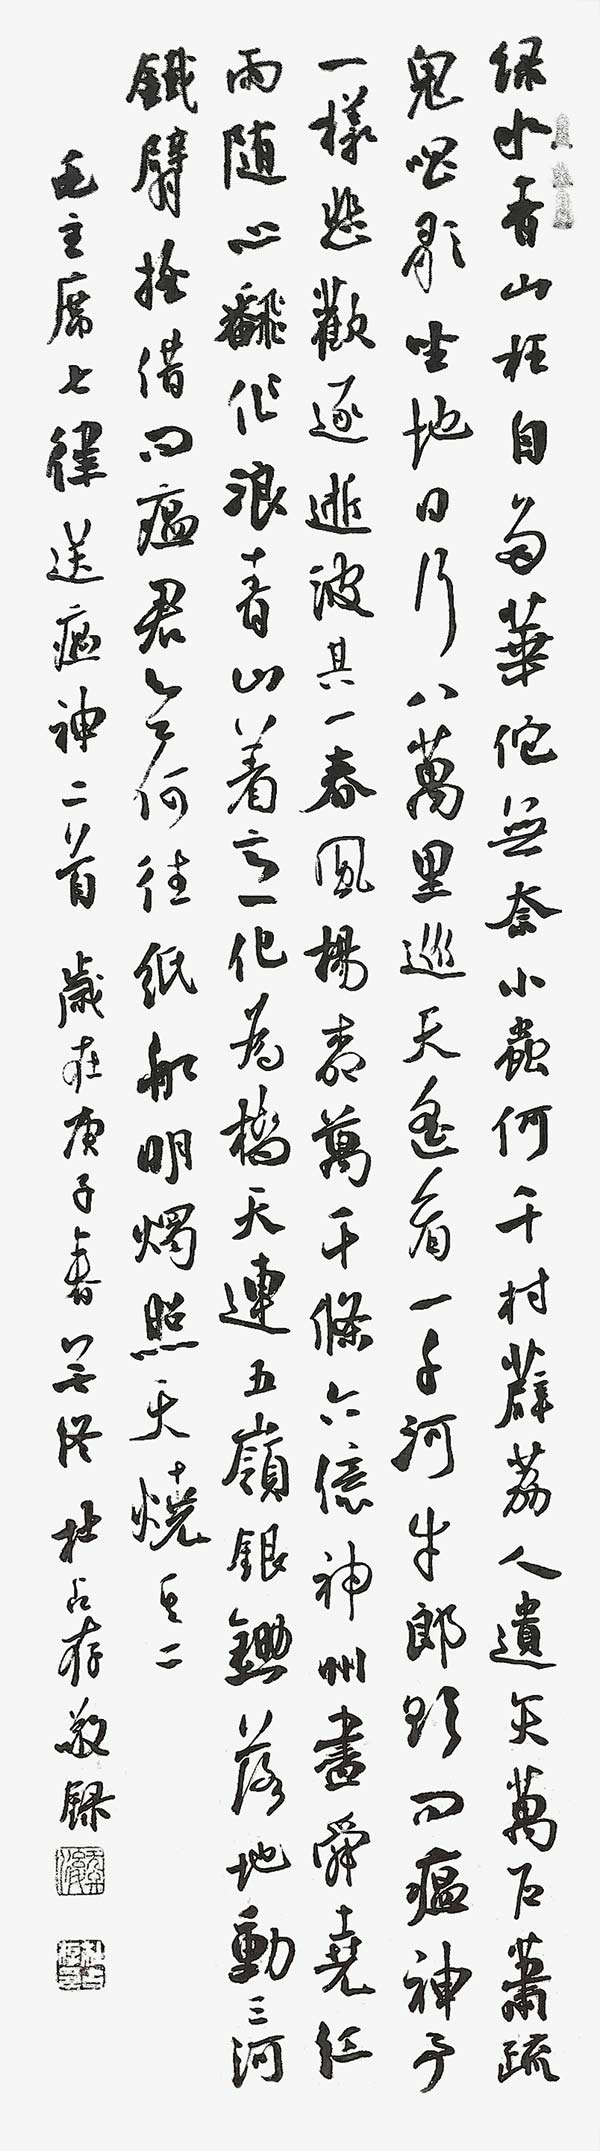 綠水青山枉自多華佗無奈小蟲何千村薜荔人遺矢萬戶蕭疏
鬼唱歌坐地日行八萬里巡天遙看一千河牛郎欲問瘟神事
一樣悲歡逐逝波其一春風楊柳萬千條六億神州盡舜堯紅
雨随心飜作浪青山着意化為橋天連五嶺銀鋤落地動三河
鐵臂搖借問瘟君欲何往紙船明燭照天燒其二
毛主席七律送瘟神二首 歲在庚子春 杜占存敬録